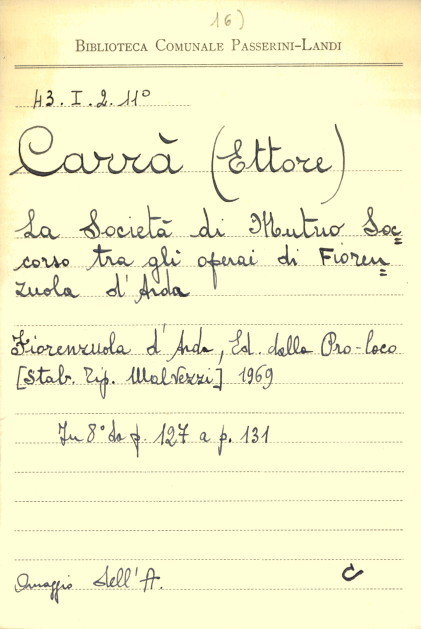 16)
BIBLIOTECA COMUNALE PASSERINI-LANDI
43. I. 2. 11°
Carrà (Ettore)
La Società di Mutuo Soc=
corso tra gli operai di Fioren=
zuola d'Arda
Fiorenzuola d'Arda, Ed. della Pro-loco
[Stab. Tip. Malvezzi] 1969
In 8° da p. 127 a p. 131
Omaggio dell'A.
C